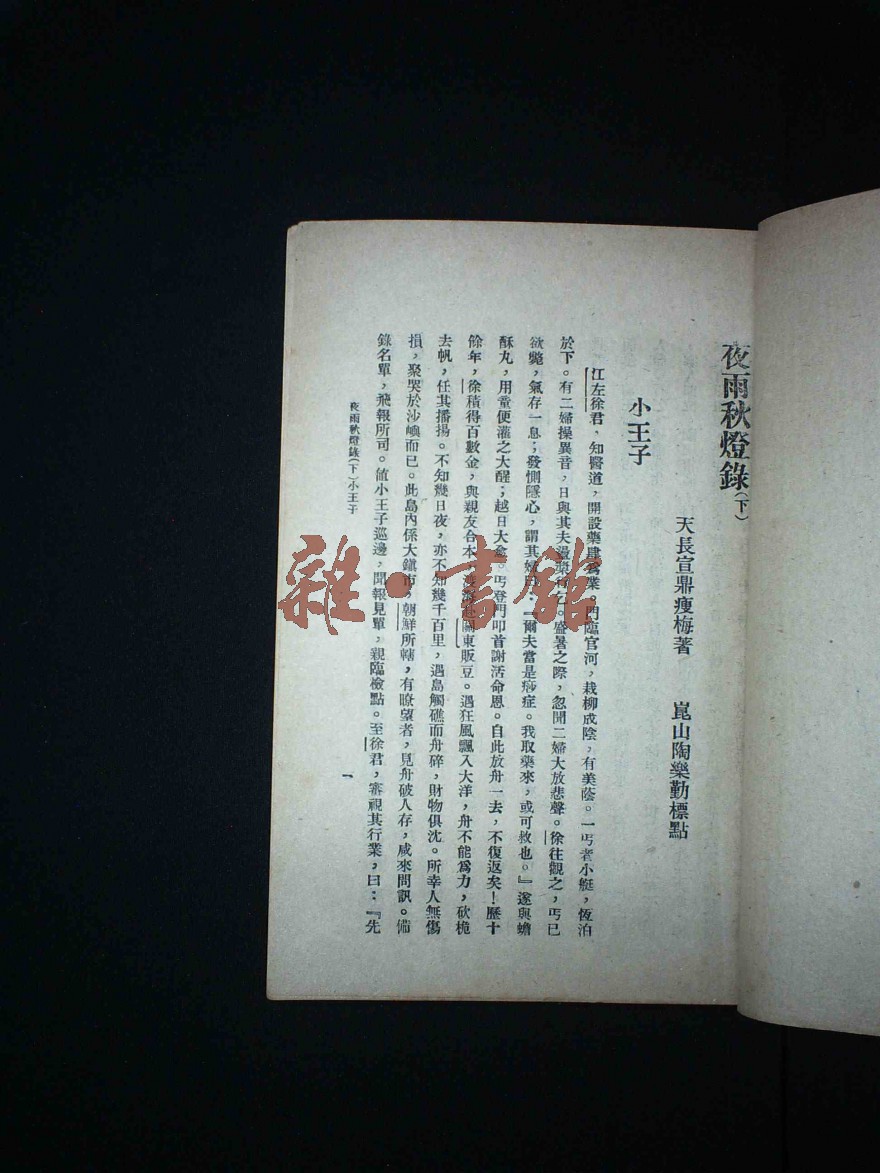 夜雨秋燈錄(下)
天長宣鼎瘦梅著　崑山陶樂勤標點
小王子
江左徐君，知醫道，開設藥肆爲業。門臨官河，栽柳成陰，有美蔭。一丐者小艇，恆泊
於下。有二婦操異音，日與其夫盪槳行乞。盛暑之際，忽聞二婦大放悲聲。徐往觀之，丐已
欲斃，氣存一息；發惻隱心，謂其婦曰：『爾夫當是痧症。我取藥來，或可救也。』遂與蟾
酥丸，用童便灌之大醒；越日大愈。丐登門叩首謝活命恩。自此放舟一去，不復返矣！歷十
餘年，徐積得百數金，與親友合本，赴關東販豆。遇狂風飄入大洋，舟不能爲力，砍桅
去帆，任其播揚。不知幾日夜，亦不知幾千百里，遇島觸礁而舟碎，財物俱沈。所幸人無傷
損，聚哭於沙嶼而已。此島內係大鎭市，朝鮮所轄，有瞭望者，見舟破人存，咸來問訊。備
錄名單，飛報所司。値小王子巡邊，聞報見單，親臨檢點。至徐君，審視其行業，曰：『先
夜雨秋燈錄(下)小王子
一
雜·書館